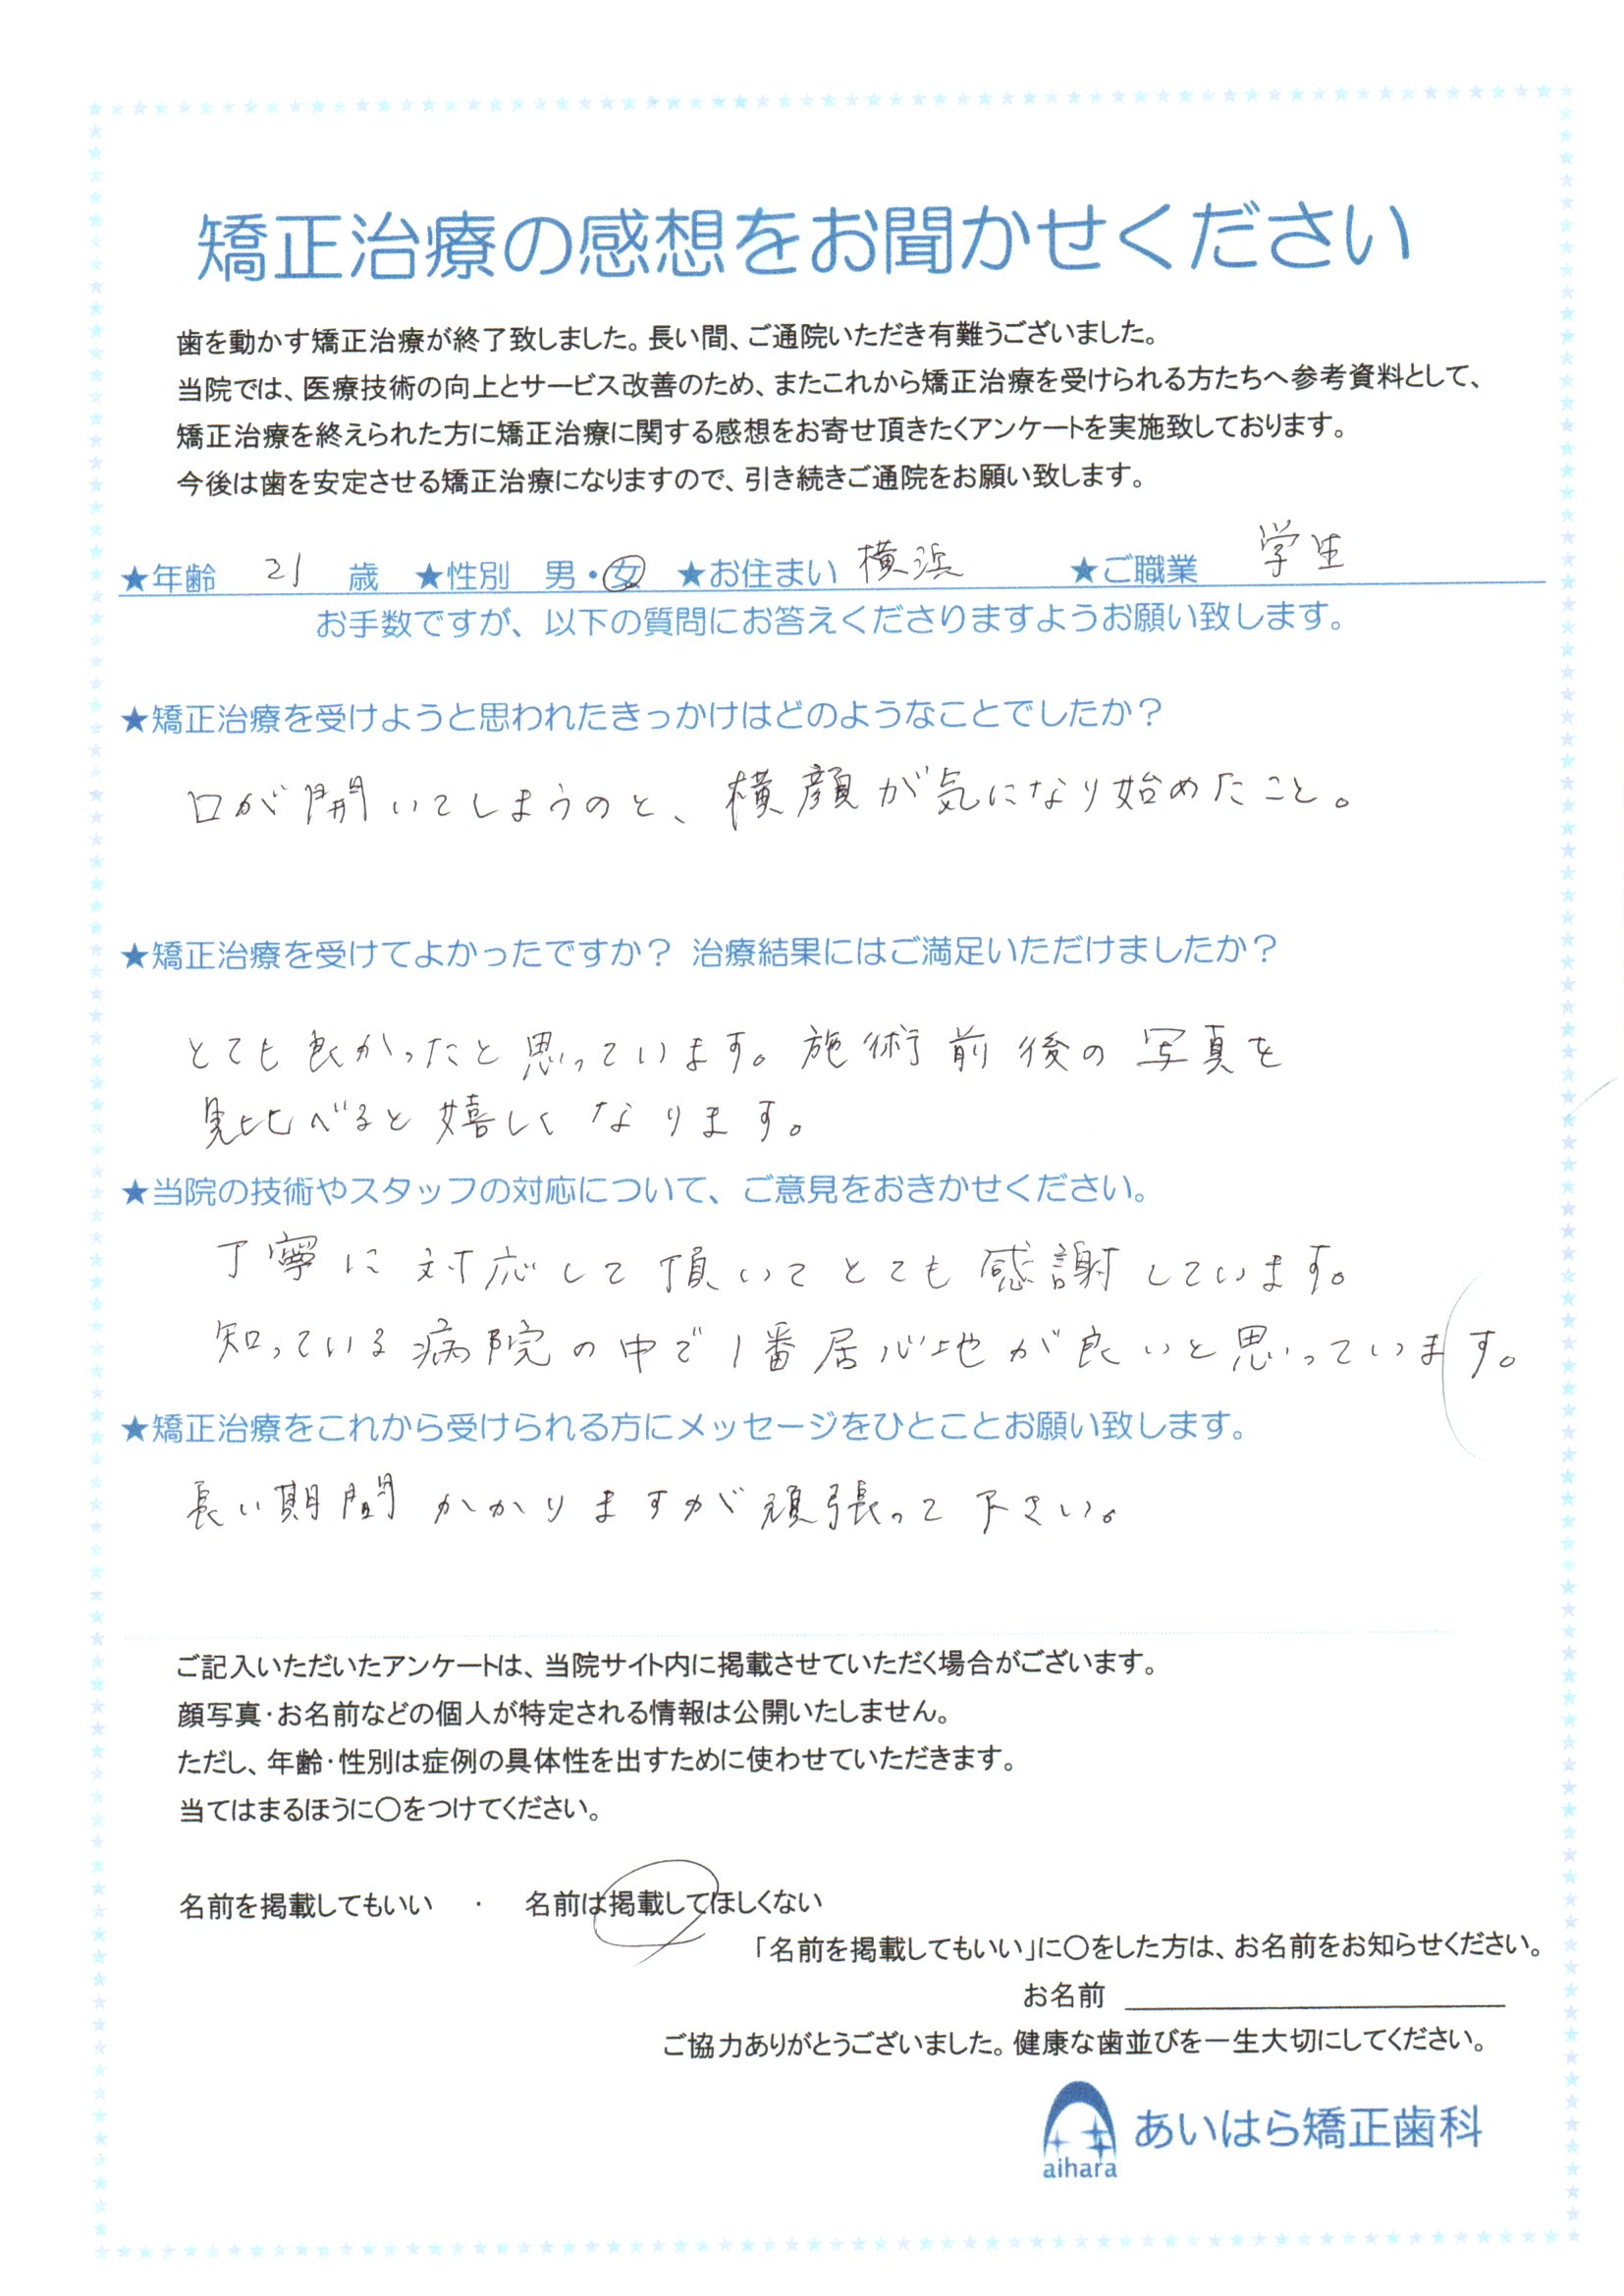 矯正治療の感想をお聞かせください
歯を動かす矯正治療が終了致しました。長い間、ご通院いただき有難うございました。
当院では、医療技術の向上とサービス改善のため、またこれから矯正治療を受けられる方たちへ参考資料として、
矯正治療を終えられた方に矯正治療に関する感想をお寄せ頂きたくアンケートを実施致しております。
今後は歯を安定させる矯正治療になりますので、引き続きご通院をお願い致します。
★年齢 21 歳 ★性別 男・女 ★お住まい 横浜 ★ご職業 学生
お手数ですが、以下の質問にお答えくださりますようお願い致します。
★矯正治療を受けようと思われたきっかけはどのようなことでしたか？
口が開いてしまうのと、横顔が気になり始めたこと。
★矯正治療を受けてよかったですか？ 治療結果にはご満足いただけましたか？
とても良かったと思っています。施術前後の写真を
見比べると嬉しくなります。
★当院の技術やスタッフの対応について、ご意見をおきかせください。
丁寧に対応して頂いてとても感謝しています。
知っている病院の中で1番居心地が良いと思っています。
★矯正治療をこれから受けられる方にメッセージをひとことお願い致します。
長い期間かかりますが頑張って下さい。
ご記入いただいたアンケートは、当院サイト内に掲載させていただく場合がございます。
顔写真・お名前などの個人が特定される情報は公開いたしません。
ただし、年齢・性別は症例の具体性を出すために使わせていただきます。
当てはまるほうに〇をつけてください。
名前を掲載してもいい ・ 名前は掲載してほしくない
「名前を掲載してもいい」に〇をした方は、お名前をお知らせください。
お名前
ご協力ありがとうございました。健康な歯並びを一生大切にしてください。
aihara あいはら矯正歯科